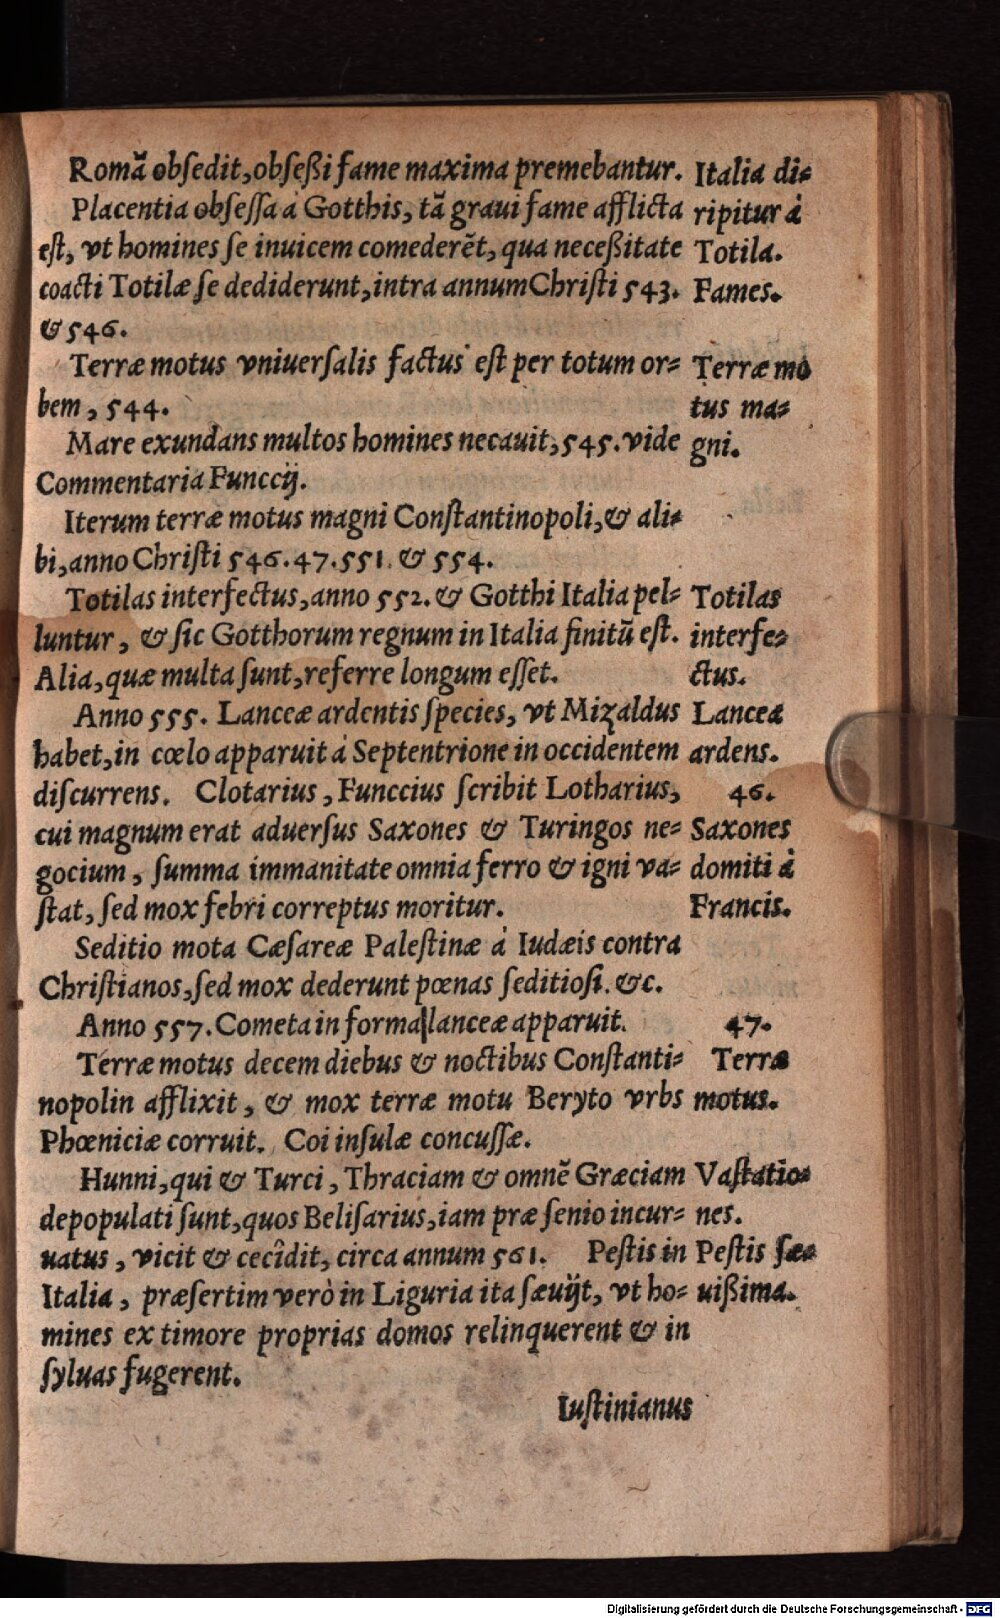 Romā obſedit, obſeßi fame maxima premebantur.
Placentia obſeſſa à Gotthis, tā graui fame afflicta
eſt, vt homines ſe inuicem comederēt, qua neceßitate
coacti Totilæ ſe dediderunt, intra annum Chriſti 543.
& 546.
Terræ motus vniuerſalis factus eſt per totum or=
bem, 544.
Mare exundans multos homines necauit, 545. vide
Commentaria Funccij.
Iterum terræ motus magni Conſtantinopoli, & ali=
bi, anno Chriſti 546. 47. 551. & 554.
Totilas interfectus, anno 552. & Gotthi Italia pel=
luntur, & ſic Gotthorum regnum in Italia finitū eſt.
Alia, quæ multa ſunt, referre longum eſſet.
Anno 555. Lanceæ ardentis ſpecies, vt Mizaldus
habet, in cœlo apparuit à Septentrione in occidentem
diſcurrens. Clotarius, Funccius ſcribit Lotharius,
cui magnum erat aduerſus Saxones & Turingos ne=
gocium, ſumma immanitate omnia ferro & igni va=
ſtat, ſed mox febri correptus moritur.
Seditio mota Cæſareæ Paleſtinæ à Iudæis contra
Chriſtianos, ſed mox dederunt pœnas ſeditioſi. &c.
Anno 557. Cometa in forma lanceæ apparuit.
Terræ motus decem diebus & noctibus Conſtanti=
nopolin afflixit, & mox terræ motu Beryto vrbs
Phœniciæ corruit. Coi inſulæ concuſſæ.
Hunni, qui & Turci, Thraciam & omnē Græciam
depopulati ſunt, quos Beliſarius, iam præ ſenio incur=
uatus, vicit & cecîdit, circa annum 561. Peſtis in
Italia, præſertim verò in Liguria ita ſæuijt, vt ho=
mines ex timore proprias domos relinquerent & in
ſyluas fugerent.
Iuſtinianus
Italia di=
ripitur à
Totila.
Fames.
Terræ mo
tus ma=
gni.
Totilas
interfe=
ctus.
Lancea
ardens.
46.
Saxones
domiti à
Francis.
47.
Terræ
motus.
Vaſtatio=
nes.
Peſtis ſæ=
uißima.
Digitalisierung gefördert durch die Deutsche Forschungsgemeinschaft - DFG